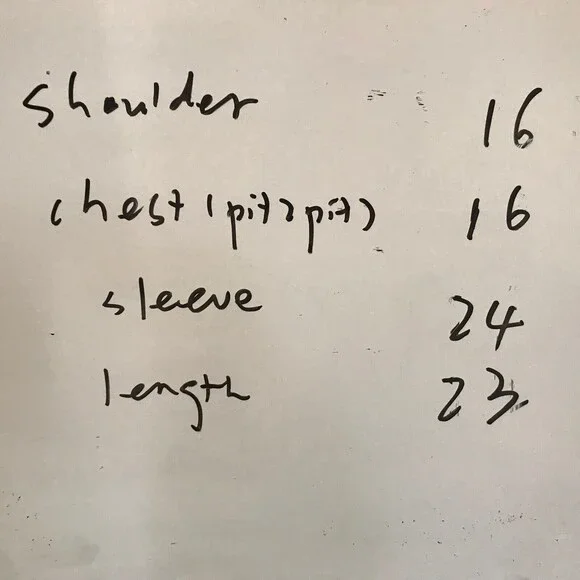 shoulder 16
chest (pit2pit) 16
sleeve 24
length 23